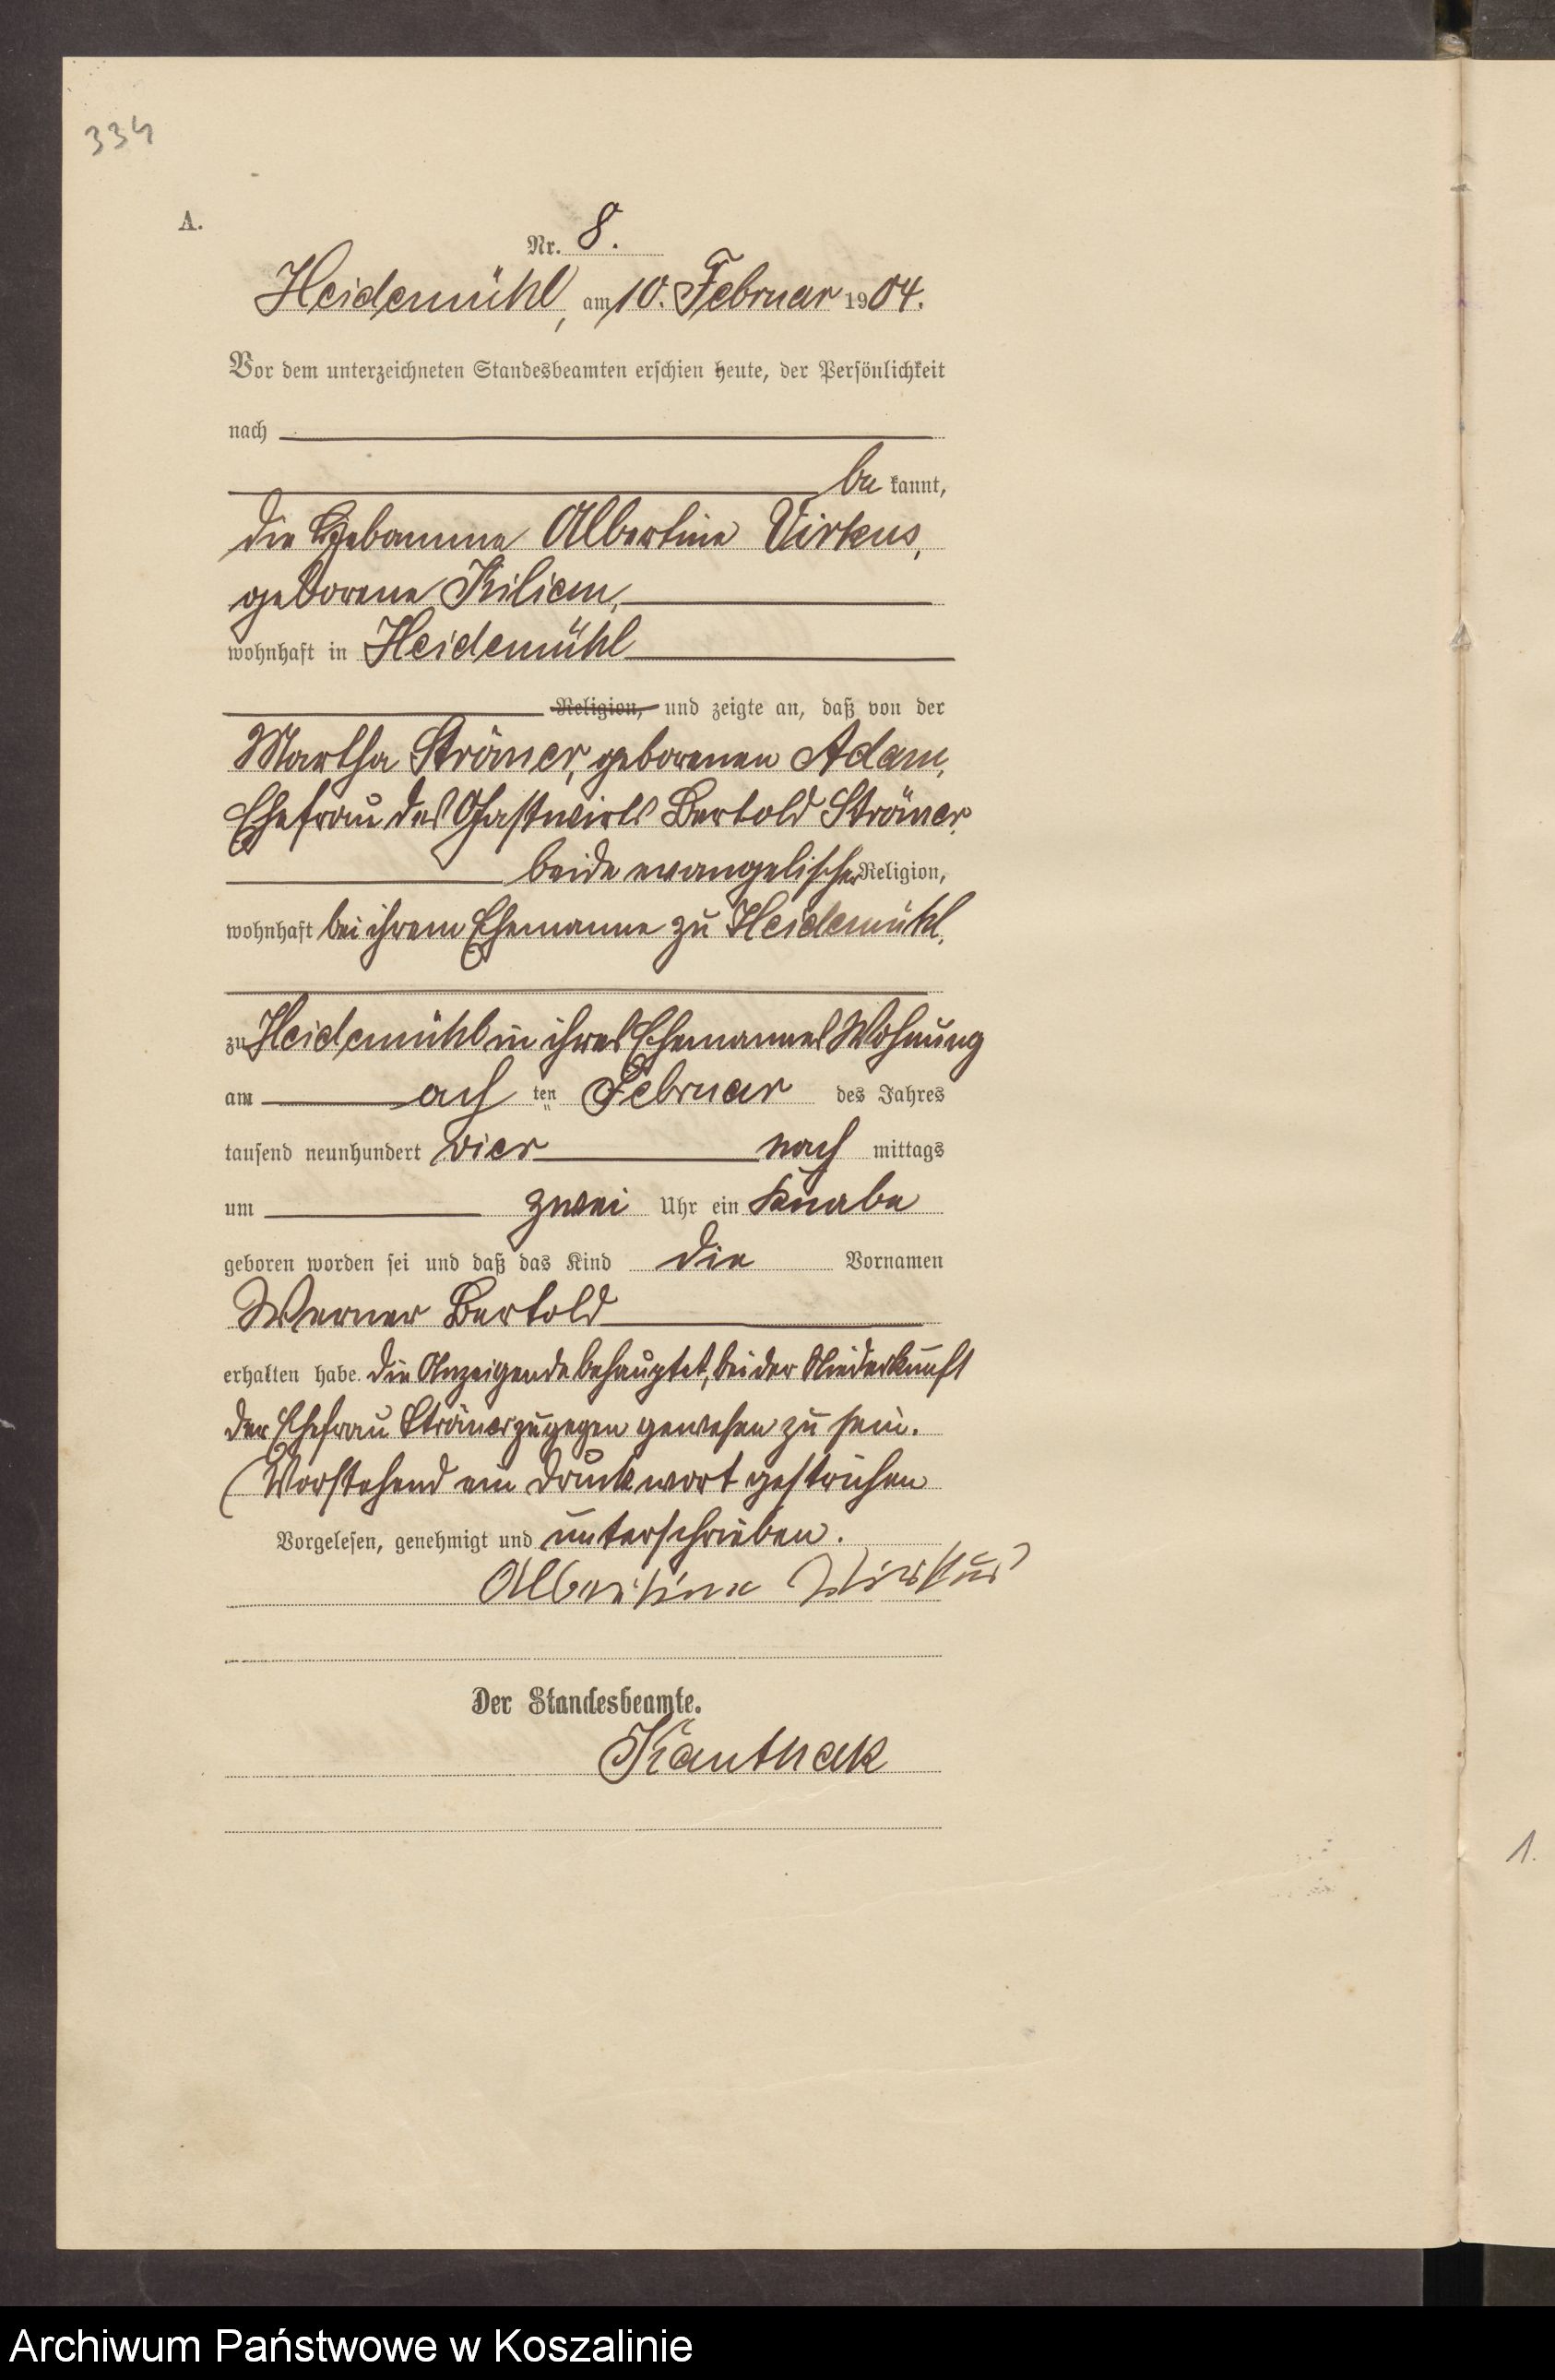 334
A.
Nr. 8.
Heidemühl, am 10. Februar 1904.
Vor dem unterzeichneten Standesbeamten erschien heute, der Persönlichkeit
nach
be kannt,
die Hebamme Albertine Virkus,
geborene Kilian,
wohnhaft in Heidemühl
Religion, und zeigte an, daß von der
Martha Ströner, geborenen Adam,
Ehefrau des Gastwirts Bertold Ströner,
beide evangelischer Religion,
wohnhaft bei ihrem Ehemanne zu Heidemühl,
zu Heidemühl in ihres Ehemannes Wohnung
am ach ten Februar des Jahres
tausend neunhundert vier nach mittags
um zwei Uhr ein Knabe
geboren worden sei und daß das Kind die Vornamen
Werner Bertold
erhalten habe. Die Anzeigende behauptet, bei der Niederkunft
der Ehefrau Ströner zugegen gewesen zu sein.
(Vorstehend ein Druckwort gestrichen
Vorgelesen, genehmigt und unterschrieben.
Albertine Virkus
Der Standesbeamte.
Kauthak
1.
Archiwum Państwowe w Koszalinie